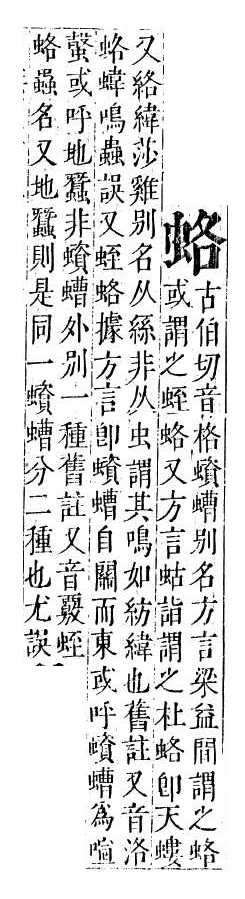 蛒
古伯切音格蠀螬别名方言梁益間謂之蛒
或謂之蛭蛒又方言蛄詣謂之杜蛒卽天螻
又絡緯莎雞别名从絲非从虫謂其鳴如紡緯也舊註又音洛
蛒鳴蟲誤又蛭蛒據方言卽蠀螬自關而東或呼蠀螬爲喧
螜或呼地蠶非蠀螬外别一種舊註又音覈蛭
蛒蟲名又地蠶則是同一蠀螬分二種也尤誤